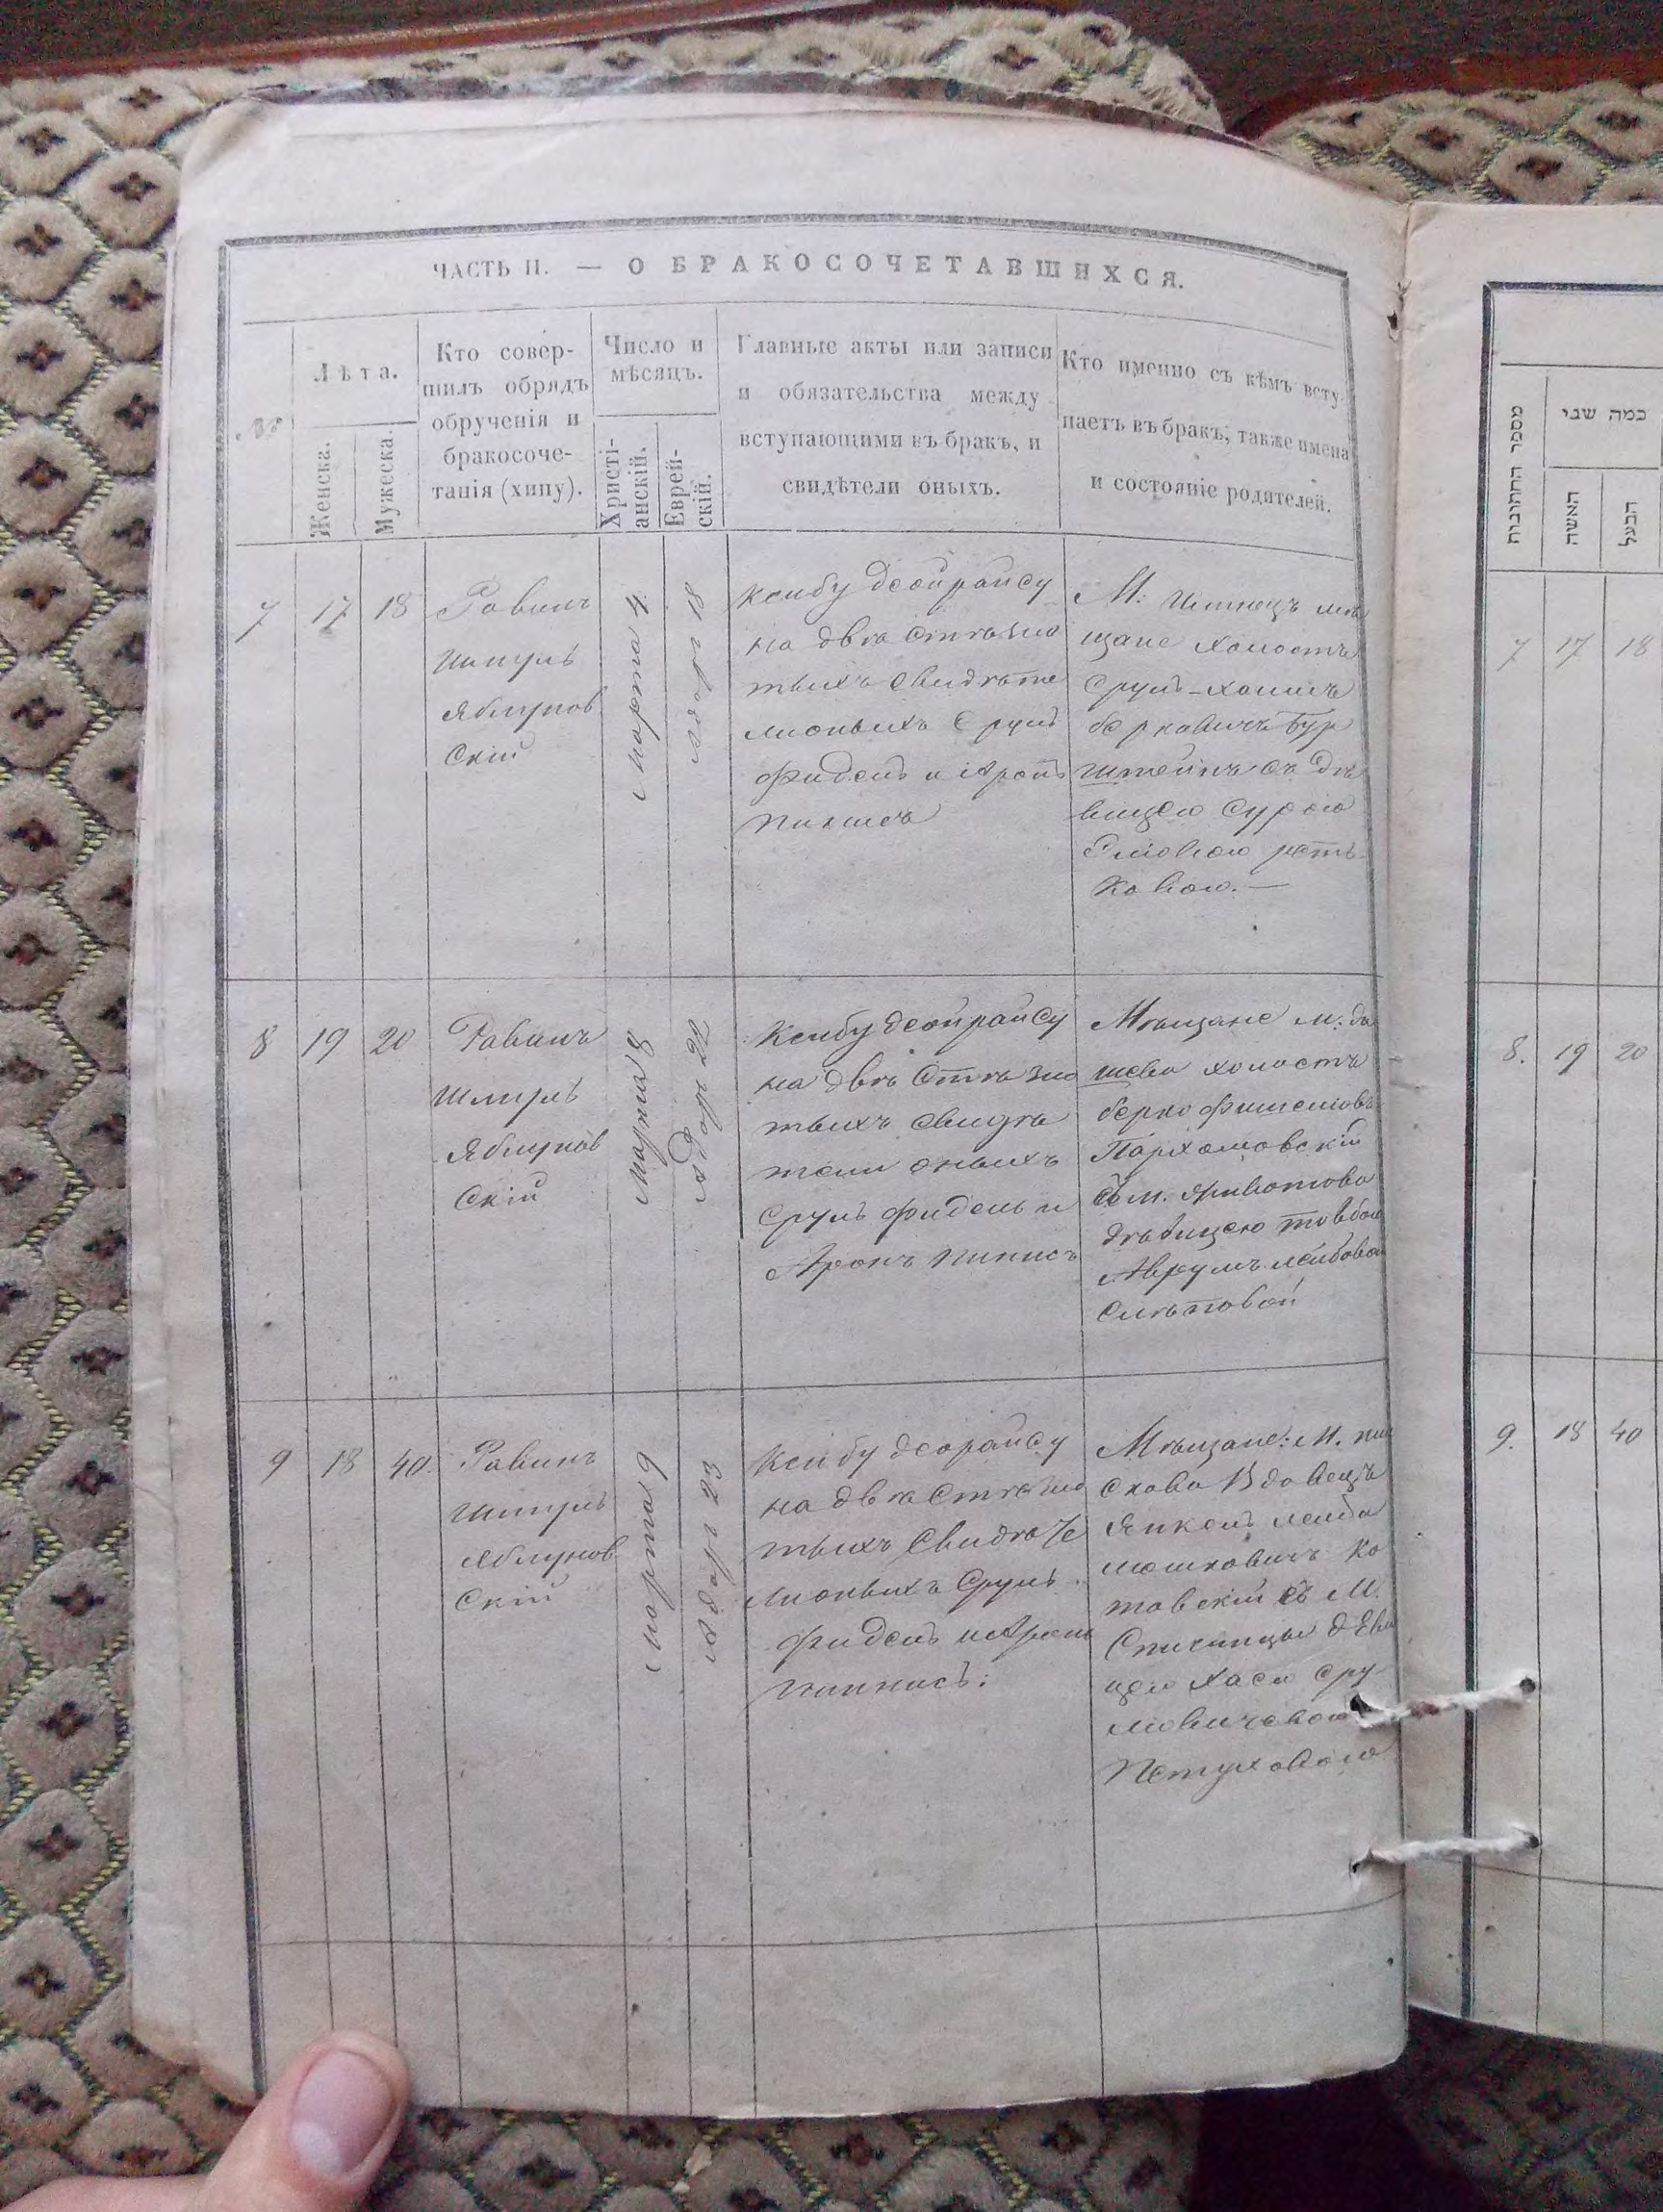 ЧАСТЬ II. — О БРАКОСОЧЕТАВШИХСЯ.
№
Лѣта.
Женска.
Мужеска.
Кто совер-
шилъ обрядъ
обрученія и
бракосоче-
танія (хипу).
Число и
мѣсяцъ.
Христі-
анскій.
Еврей-
скій.
Главные акты или записи
и обязательства между
вступающими въ бракъ, и
свидѣтели оныхъ.
Кто именно съ кѣмъ всту-
паетъ въ бракъ; также имена
и состояніе родителей.
7
17
18
Равинъ
Шмуль
Яблунов
скій
Марта 4
Адаръ 18
Ксибу деойрайсу
на двѣ стѣ зло
тыхъ свидѣте
ли оныхъ Сруль
Фидель и Аронъ
Пинисъ
щане холостъ
Сруль-Хаимъ
Берковичъ Бур
штейнъ съ дѣ
вицею Сурою
ковою. —
8
19
20
Равинъ
Шмуль
Яблунов
скій
Марта 8
Адаръ 22
Ксибу деойрайсу
на двѣ стѣ зло
тыхъ свидѣ
тели оныхъ
Сруль Фидель и
Аронъ Пинисъ
Мѣщане м: Да
шева холостъ
Берко Фишелiовъ
Пархомовскій
съ м.
дѣвицею Товбою
Аврумъ Лейбовой
Слѣповой
9
18
40
Равинъ
Шмуль
Яблунов
скій
Марта 9
Адаръ 23
Ксибу деорайсу
на двѣ стѣ зло
тыхъ свидѣте
ли оныхъ Сруль
Фидель и Аронъ
Пинисъ:
Мѣщане: М.
вдовецъ
Янкель Лейба
Мошковичъ Ко
товскій съ М.
Спичинцы дѣви
цею Хаею Сру
левичевою
Петуховою
מספר החתונות
כמה שני
האשה
הבעל
7
17
18
8.
19
20
9.
18
40